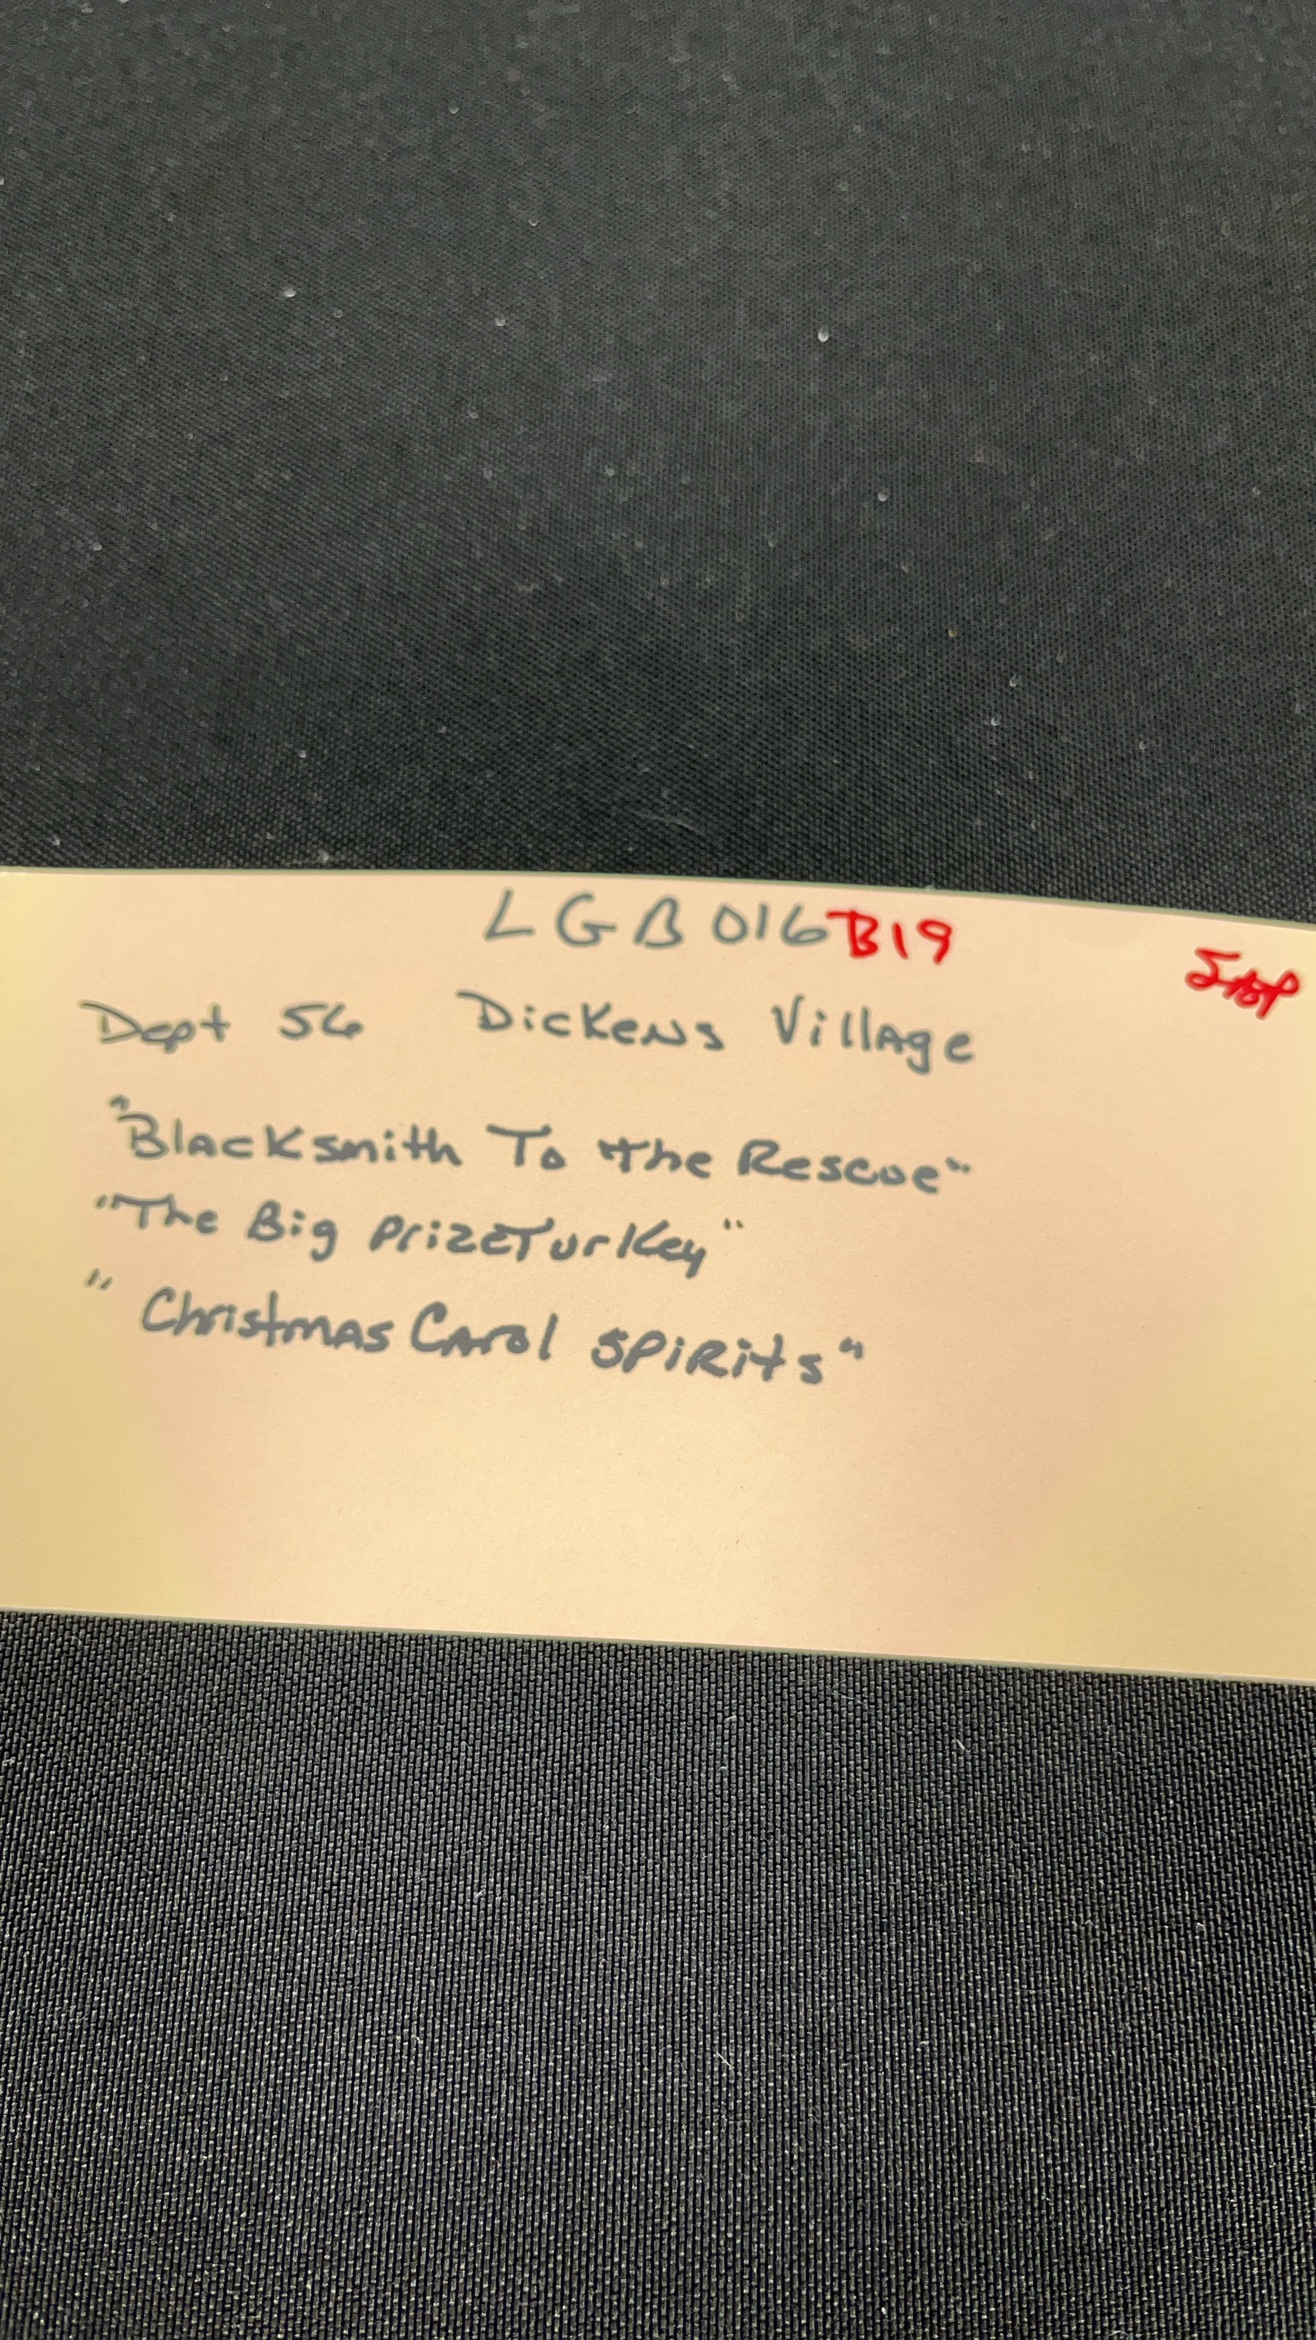 LGB016 B19
Dept 56 Dickens Village
"Blacksmith To the Rescue"
"The Big PrizeTurkey"
"Christmas Carol Spirits"